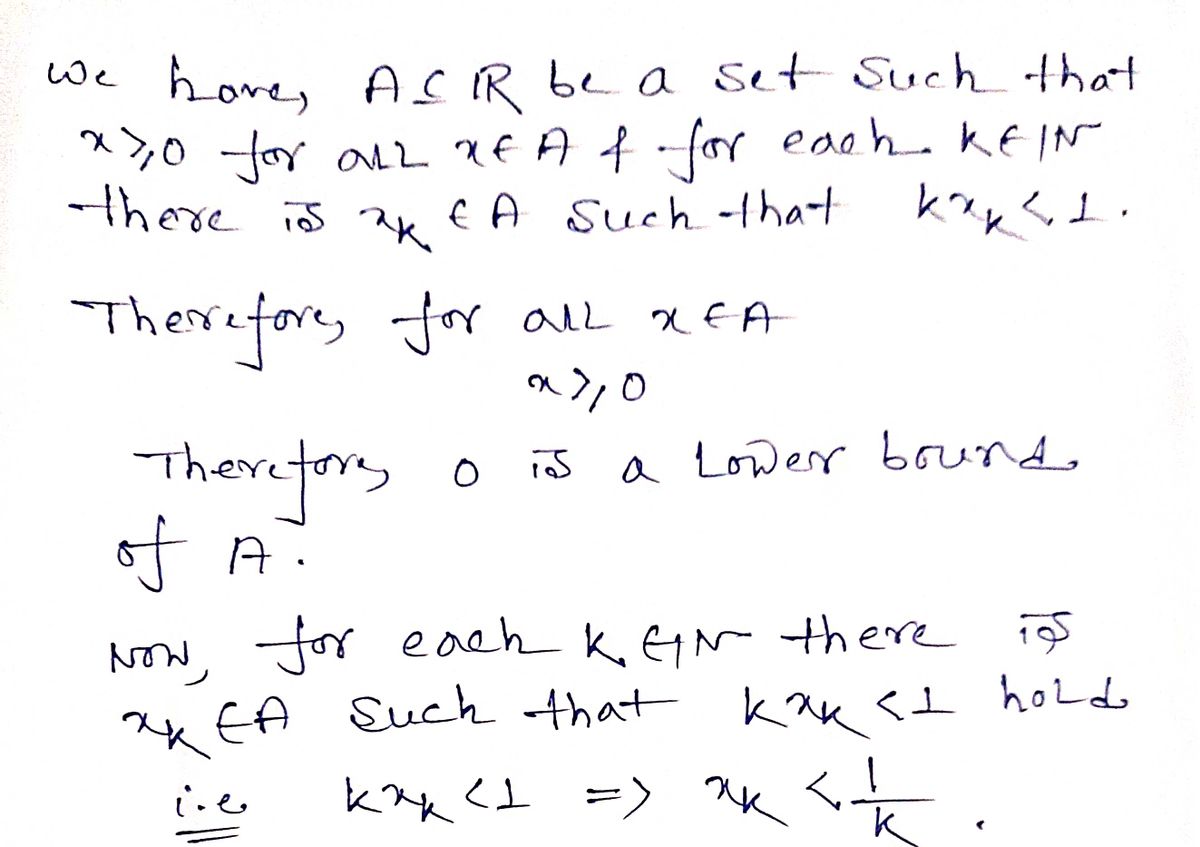 We have, A ⊆ ℝ be a set such that
x ≥ 0 for all x ∈ A & for each k ∈ ℕ
there is xₖ ∈ A such that kxₖ < 1.
Therefore, for all x ∈ A
x ≥ 0
Therefore, 0 is a lower bound
of A.
Now, for each k ∈ ℕ there is
xₖ ∈ A such that kxₖ < 1 hold
i.e kxₖ < 1 => xₖ < 1/k .